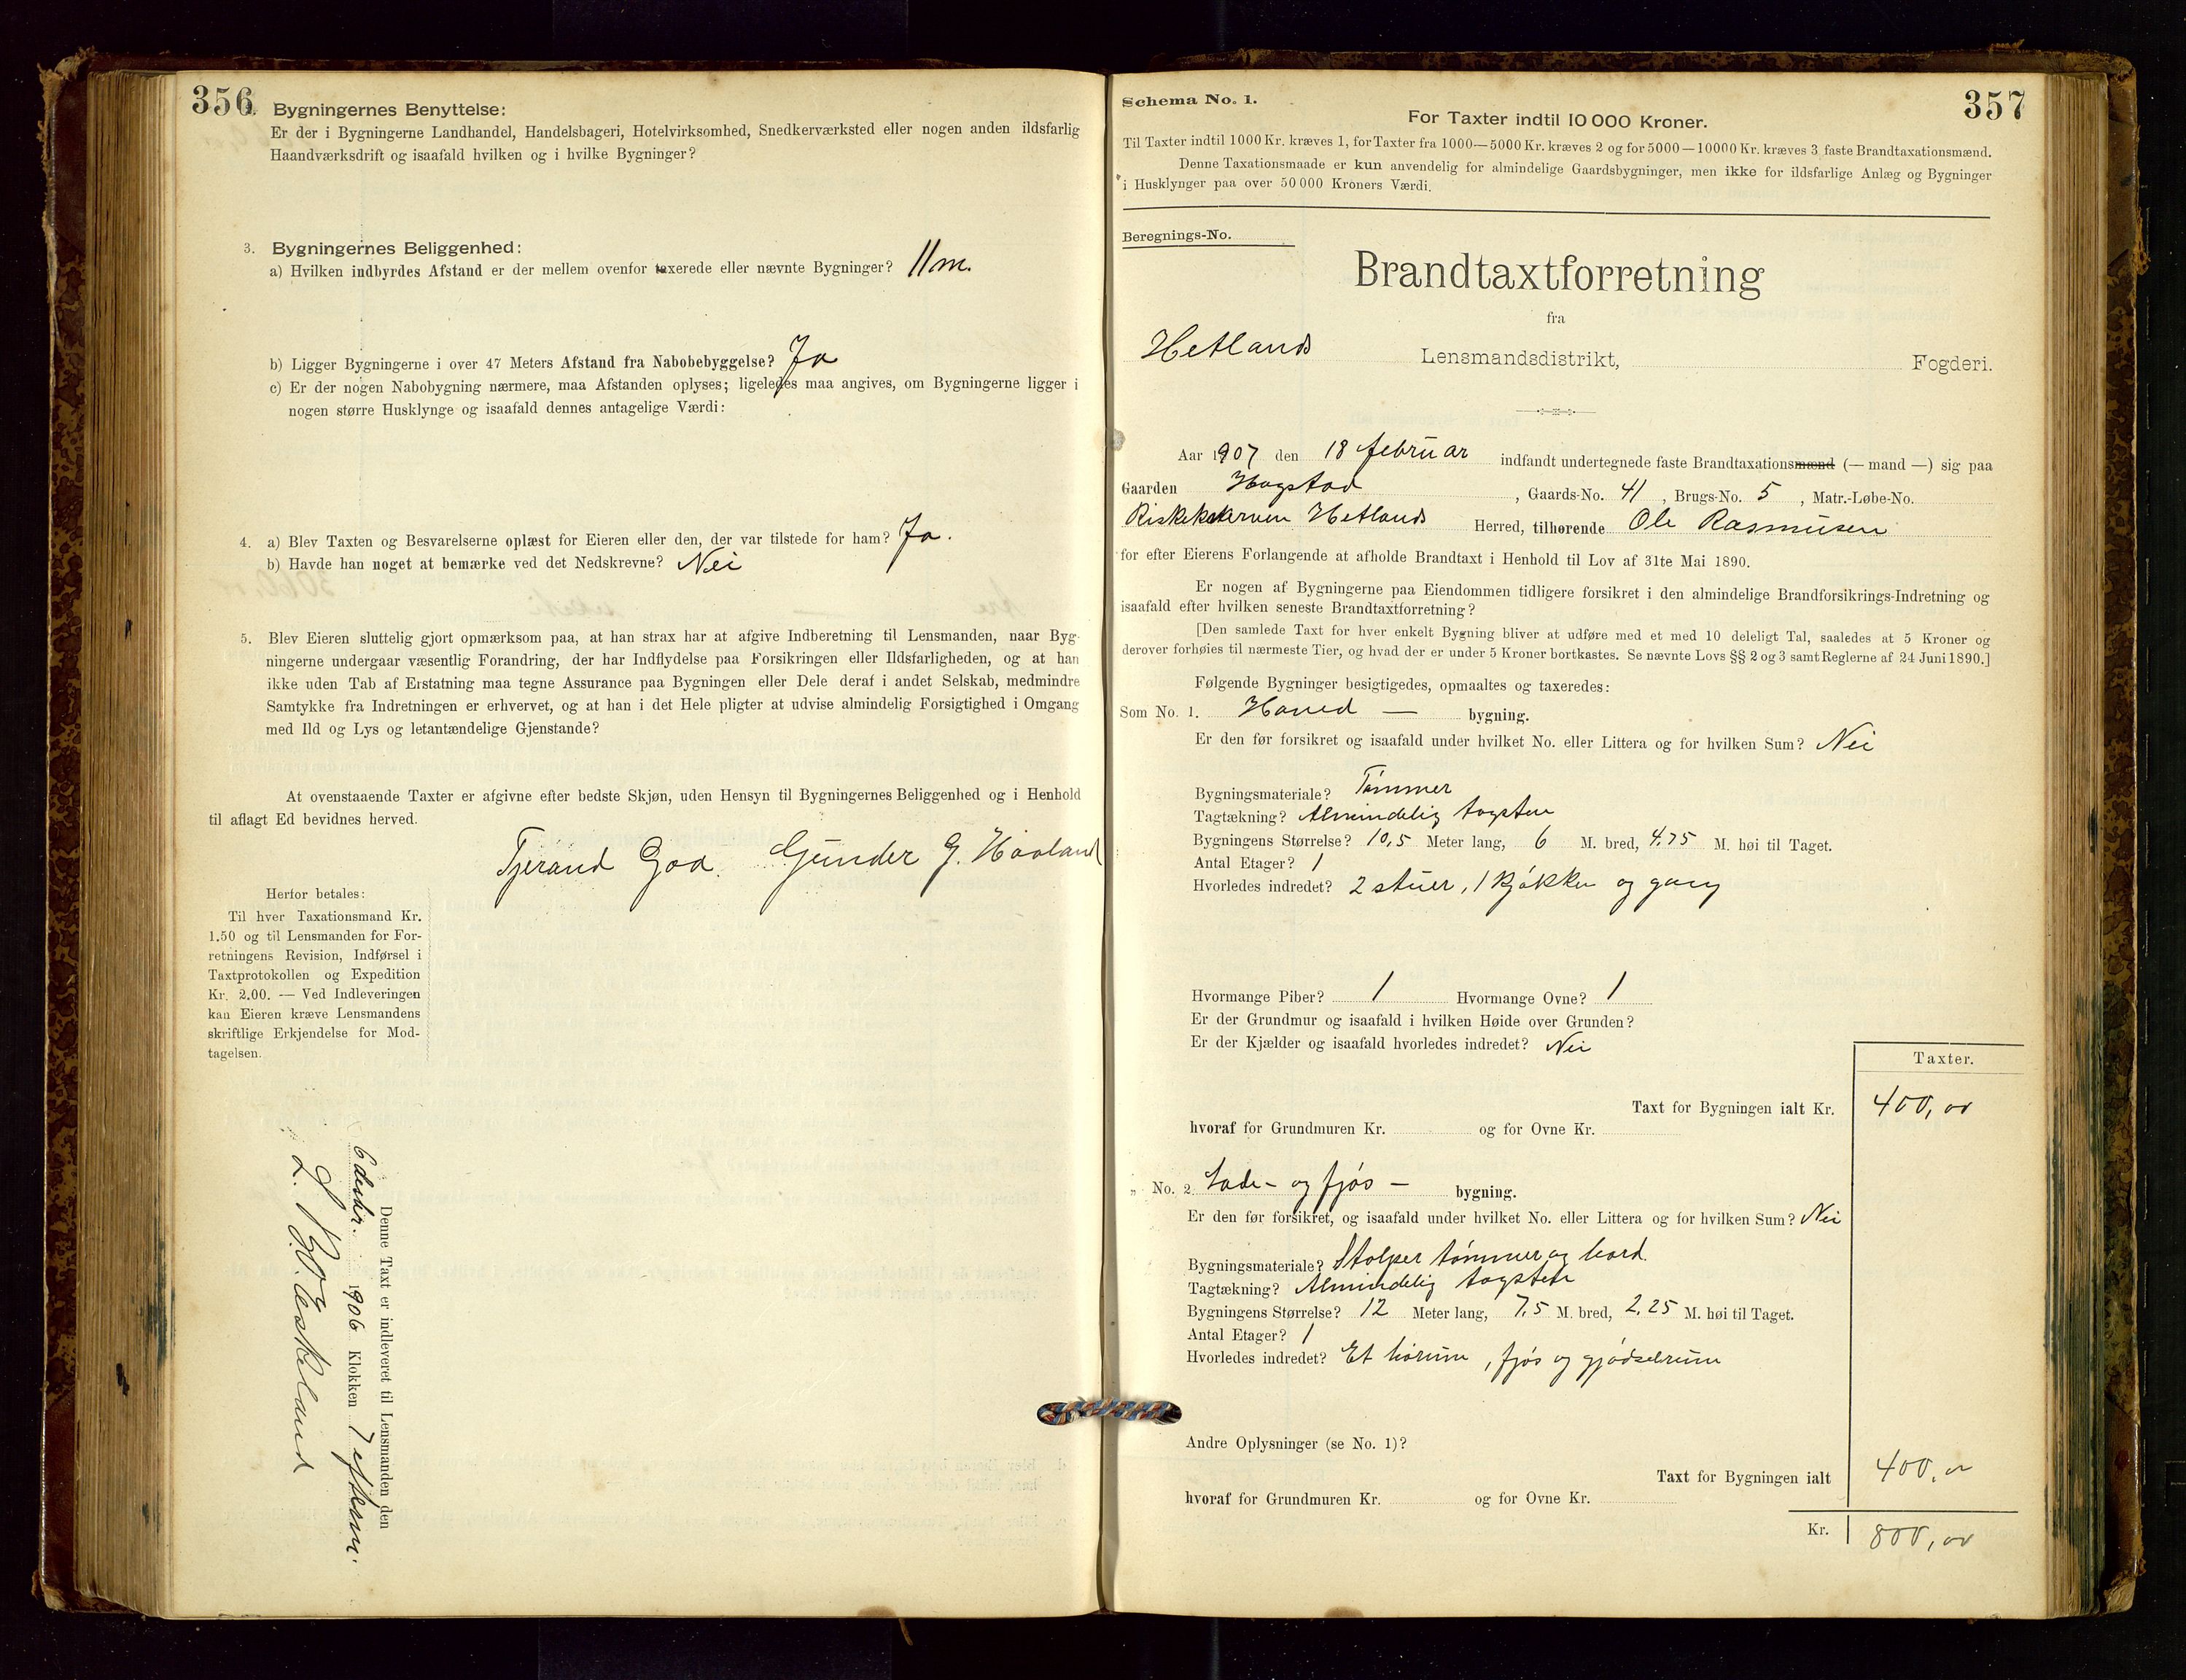 356
Bygningernes Benyttelse:
Er der i Bygningerne Landhandel, Handelsbageri, Hotelvirksomhed, Snedkerværksted eller nogen anden ildsfarlig
Haandværksdrift og isaafald hvilken og i hvilke Bygninger?
3. Bygningernes Beliggenhed:
a) Hvilken indbyrdes Afstand er der mellem ovenfor taxerede eller nævnte Bygninger? 11 m.
b) Ligger Bygningerne i over 47 Meters Afstand fra Nabobebyggelse? Ja
c) Er der nogen Nabobygning nærmere, maa Afstanden oplyses; ligeledes maa angives, om Bygningerne ligger i
nogen større Husklynge og isaafald dennes antagelige Værdi:
4. a) Blev Taxten og Besvarelserne oplæst for Eieren eller den, der var tilstede for ham? Ja.
b) Havde han noget at bemærke ved det Nedskrevne? Nei
5. Blev Eieren sluttelig gjort opmærksom paa, at han strax har at afgive Indberetning til Lensmanden, naar Byg-
ningerne undergaar væsentlig Forandring, der har Indflydelse paa Forsikringen eller Ildsfarligheden, og at han
ikke uden Tab af Erstatning maa tegne Assurance paa Bygningen eller Dele deraf i andet Selskab, medmindre
Samtykke fra Indretningen er erhvervet, og at han i det Hele pligter at udvise almindelig Forsigtighed i Omgang
med Ild og Lys og letantændelige Gjenstande?
At ovenstaaende Taxter er afgivne efter bedste Skjøn, uden Hensyn til Bygningernes Beliggenhed og i Henhold
til aflagt Ed bevidnes herved.
Tjerand Goa. Gunder G. Haaland
Herfor betales:
Til hver Taxationsmand Kr.
1.50 og til Lensmanden for For-
retningens Revision, Indførsel i
Taxtprotokollen og Expedition
Kr. 2.00. — Ved Indleveringen
kan Eieren kræve Lensmandens
skriftlige Erkjendelse for Mod-
tagelsen.
Denne Taxt er indleveret til Lensmanden den
6 desbr. 1906 Klokken 7 efterm.
Eskeland
Schema No. 1.
357
For Taxter indtil 10 000 Kroner.
Til Taxter indtil 1000 Kr. kræves 1, for Taxter fra 1000—5000 Kr. kræves 2 og for 5000—10000 Kr. kræves 3 faste Brandtaxationsmænd.
Denne Taxationsmaade er kun anvendelig for almindelige Gaardsbygninger, men ikke for ildsfarlige Anlæg og Bygninger
i Husklynger paa over 50 000 Kroners Værdi.
Beregnings-No.
Brandtaxtforretning
fra
Hetlands Lensmandsdistrikt, Fogderi.
Aar 1907 den 18 februar indfandt undertegnede faste Brandtaxationsmænd (— mand —) sig paa
Gaarden Hogstad, Gaards-No. 41, Brugs-No. 5, Matr.-Løbe-No.
Hetlands Herred, tilhørende Ole Rasmusen
for efter Eierens Forlangende at afholde Brandtaxt i Henhold til Lov af 31te Mai 1890.
Er nogen af Bygningerne paa Eiendommen tidligere forsikret i den almindelige Brandforsikrings-Indretning og
isaafald efter hvilken seneste Brandtaxtforretning?
[Den samlede Taxt for hver enkelt Bygning bliver at udføre med et med 10 deleligt Tal, saaledes at 5 Kroner og
derover forhøies til nærmeste Tier, og hvad der er under 5 Kroner bortkastes. Se nævnte Lovs §§ 2 og 3 samt Reglerne af 24 Juni 1890.]
Følgende Bygninger besigtigedes, opmaaltes og taxeredes:
Som No. 1. Hoved — bygning.
Er den før forsikret og isaafald under hvilket No. eller Littera og for hvilken Sum? Nei
Bygningsmateriale? Tømmer
Tagtækning? Almindelig tagsten
Bygningens Størrelse? 10,5 Meter lang, 6 M. bred, 4,75 M. høi til Taget.
Antal Etager? 1
Hvorledes indredet? 2 stuer, 1 kjøkken og gang
Hvormange Piber? 1 Hvormange Ovne? 1
Er der Grundmur og isaafald i hvilken Høide over Grunden?
Er der Kjælder og isaafald hvorledes indredet? Nei
Taxter.
Taxt for Bygningen ialt Kr. 400,00
hvoraf for Grundmuren Kr. og for Ovne Kr.
„ No. 2. Lade- og fjøs — bygning.
Er den før forsikret, og isaafald under hvilket No. eller Littera og for hvilken Sum? Nei
Bygningsmateriale? Stolper tømmer og bord.
Tagtækning? Almindelig tagsten
Bygningens Størrelse? 12 Meter lang, 7,5 M. bred, 2,25 M. høi til Taget.
Antal Etager? 1
Hvorledes indredet? Et hørum, fjøs og gjødselrum
Andre Oplysninger (se No. 1)?
Taxt for Bygningen ialt 400,00
hvoraf for Grundmuren Kr. og for Ovne Kr.
Kr. 800,00